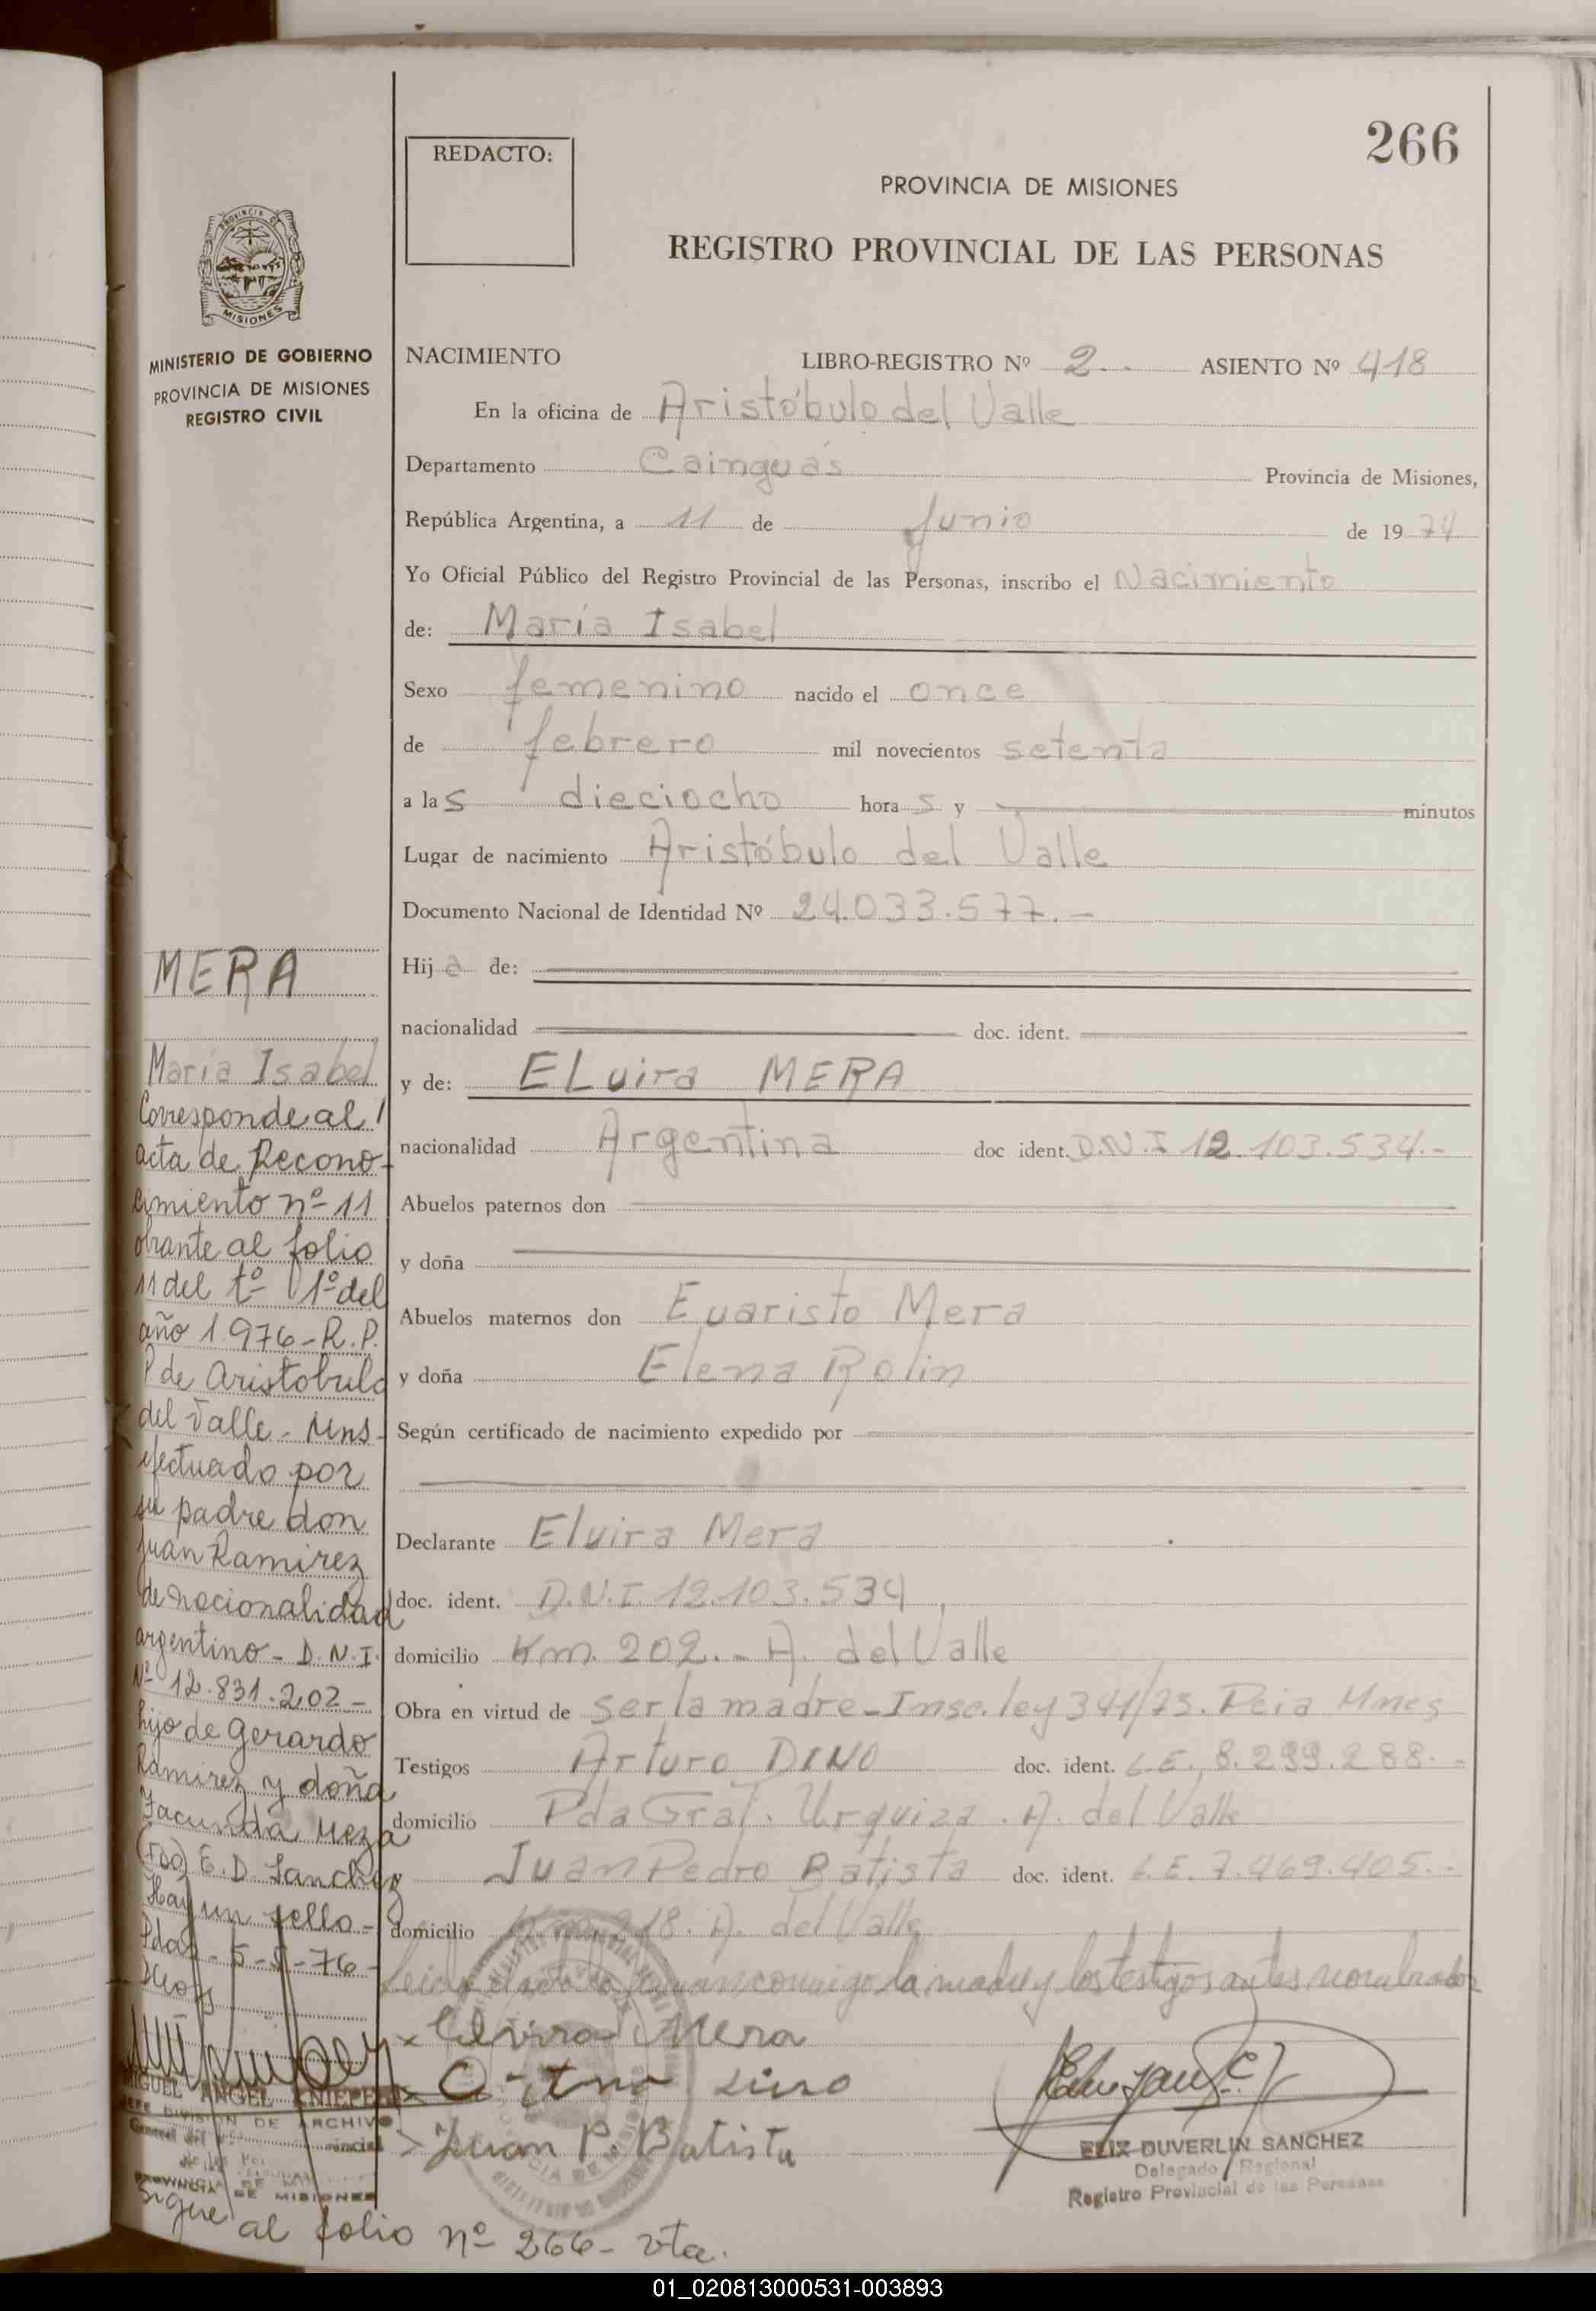 266
REDACTO:
PROVINCIA DE MISIONES
REGISTRO PROVINCIAL DE LAS PERSONAS
PROVINCIA DE
MISIONES
MINISTERIO DE GOBIERNO
PROVINCIA DE MISIONES
REGISTRO CIVIL
NACIMIENTO LIBRO-REGISTRO Nº 2 ASIENTO Nº 418
En la oficina de Aristóbulo del Valle
Departamento Cainguás Provincia de Misiones,
República Argentina, a 11 de Junio de 1974
Yo Oficial Público del Registro Provincial de las Personas, inscribo el Nacimiento
de: María Isabel
Sexo femenino nacido el once
de febrero mil novecientos setenta
a las dieciocho horas y minutos
Lugar de nacimiento Aristóbulo del Valle
Documento Nacional de Identidad Nº 24.033.577.-
Hija de:
nacionalidad doc. ident.
y de: ELvira MERA
nacionalidad Argentina doc ident. D.N.I 12.103.534.-
Abuelos paternos don
y doña
Abuelos maternos don Evaristo Mera
y doña Elena Rolin
Según certificado de nacimiento expedido por
Declarante Elvira Mera
doc. ident. D.N.I. 12.103.534
domicilio Km. 202.- A. del Valle
Obra en virtud de ser la madre-Insc. ley 341/73. Pcia Mnes
Testigos Arturo DINO doc. ident. L.E. 8.299.288.-
domicilio Pda Gral. Urquiza. A. del Valle
y Juan Pedro Batista doc. ident. L.E. 7.469.405.-
domicilio Km. 218. A. del Valle
Leida el acta la firman conmigo la madre y los testigos antes nombrados
x Elvira Mera
Juan P. Batista
ELIX DUVERLIN SANCHEZ
Delegado Regional
Registro Provincial de las Personas
MERA
María Isabel
Corresponde al
acta de Recono-
cimiento nº 11
obrante al folio
11 del tº 1º del
año 1976-R.P.
P de Aristobulo
del Valle - Mns-
efectuado por
su padre don
Juan Ramirez
de nacionalidad
argentino - D.N.I.
Nº 12.831.202-
hijo de Gerardo
Ramirez y doña
Facunda Meza
(Fdo) E.D. Sanchez
Hay un sello-
Pdas - 5-5-76-
MIGUEL ANGEL KNIEPER
JEFE DIVISION DE ARCHIVO
PROVINCIA DE MISIONES
Sigue al folio nº 266- vta.
01_020813000531-003893